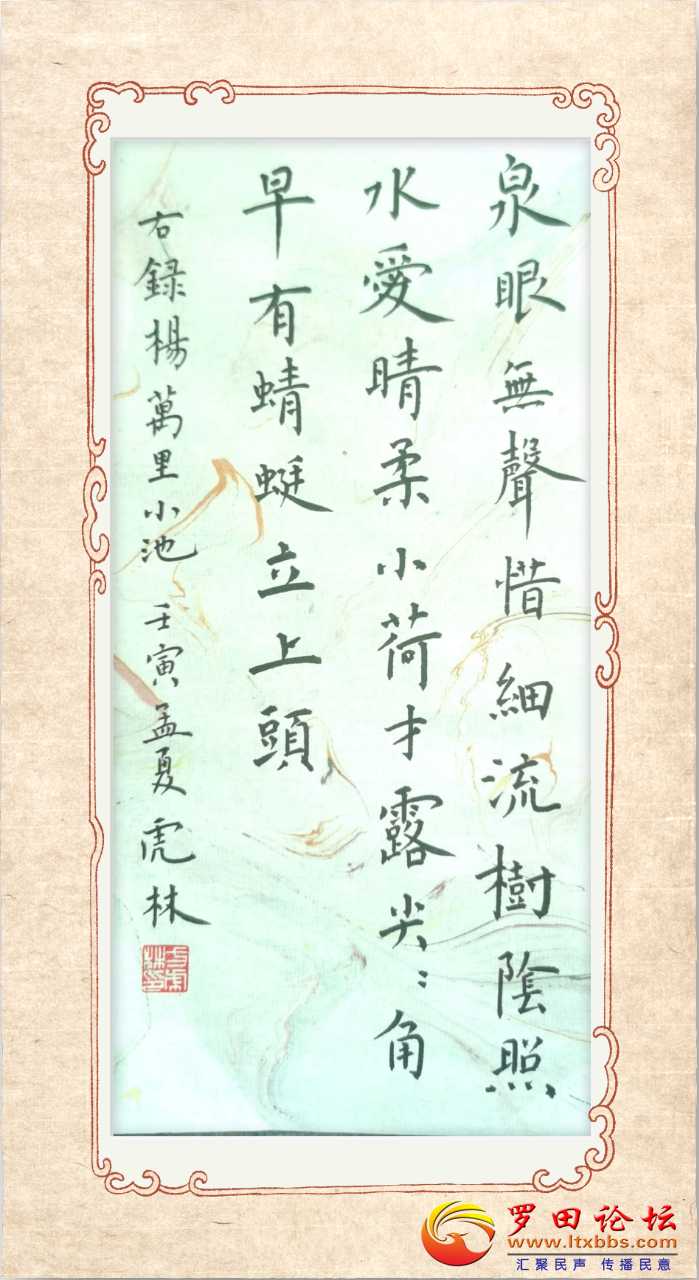 泉眼無聲惜細流樹陰照
水愛晴柔小荷才露尖〻角
早有蜻蜓立上頭
右録楊萬里小池 壬寅孟夏 虎林
罗田论坛
www.ltxbbs.com
汇聚民声 传播民意